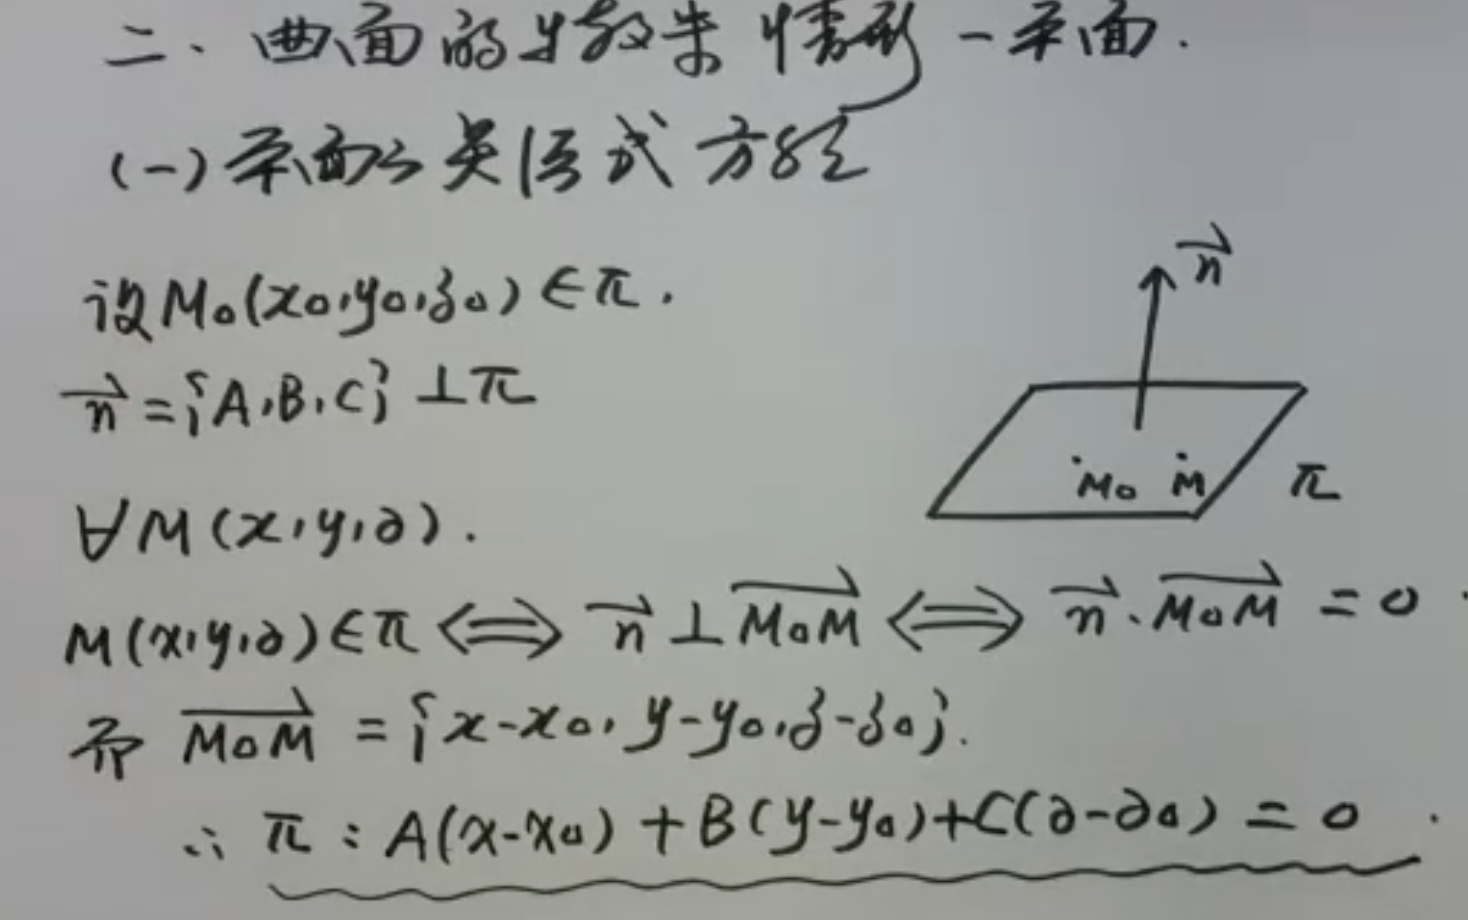 二、曲面的特殊情形-平面.
(一)平面的点法式方程
n⃗
设M₀(x₀,y₀,z₀)∈π.
n⃗={A,B,C}⊥π
M₀ M π
∀M(x,y,z).
M(x,y,z)∈π⟺n⃗⊥M₀M⃗⟺n⃗·M₀M⃗=0.
而 M₀M⃗={x-x₀,y-y₀,z-z₀}.
∴ π:A(x-x₀)+B(y-y₀)+C(z-z₀)=0.